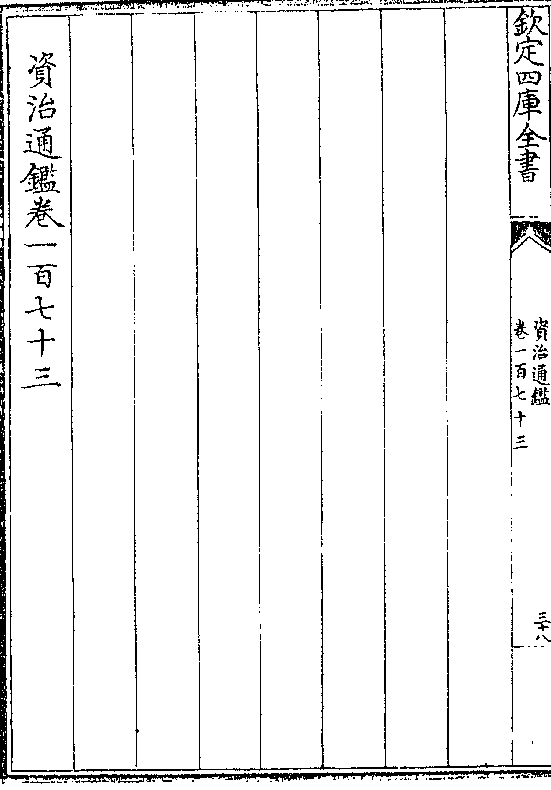 欽定四庫全書
資治通鑑
卷一百七十三
三十八
資治通鑑卷一百七十三